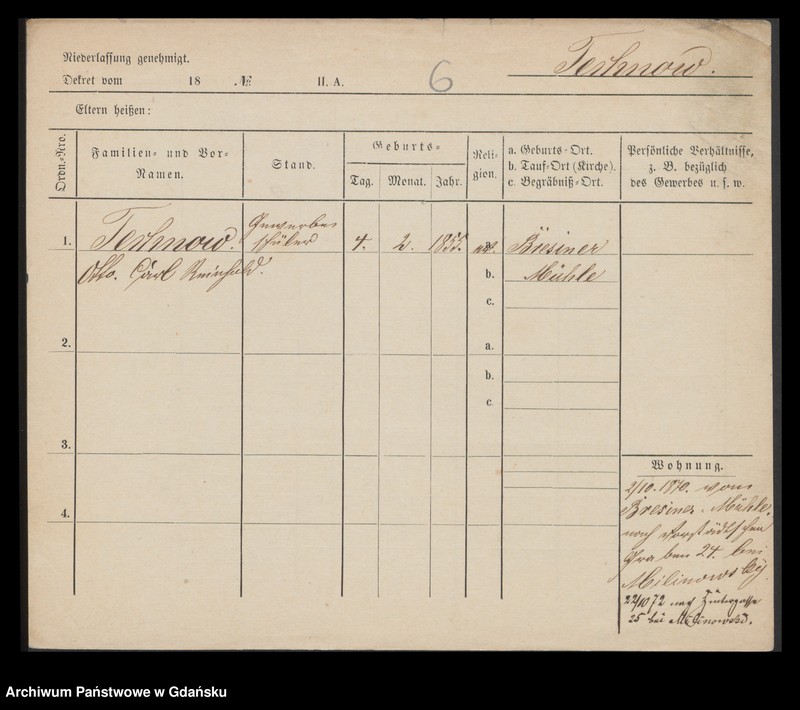 Niederlassung genehmigt.
Dekret vom 18 № II. A.
6
Technow.
Eltern heißen:
Ordn.-Nro.
Familien- und Vor-
Namen.
Stand.
Geburts-
Tag. Monat. Jahr.
Reli-
gion.
a. Geburts-Ort.
b. Tauf-Ort (Kirche).
c. Begräbniß-Ort.
Persönliche Verhältnisse,
z. B. bezüglich
des Gewerbes u. s. w.
1. Technow. Gewerbe
schüler 4. 2. 1855. Bresiner
Otto. Carl Reinhold. b. Mühle
c.
2. a.
b.
c.
3.
4.
Wohnung.
2/10. 1870. von
Bresiner Mühle,
nach Vorstädtschen
Graben 24. bei
Milinowsky.
22/10 72 nach Hintergasse
25 bei Milinowski.
Archiwum Państwowe w Gdańsku